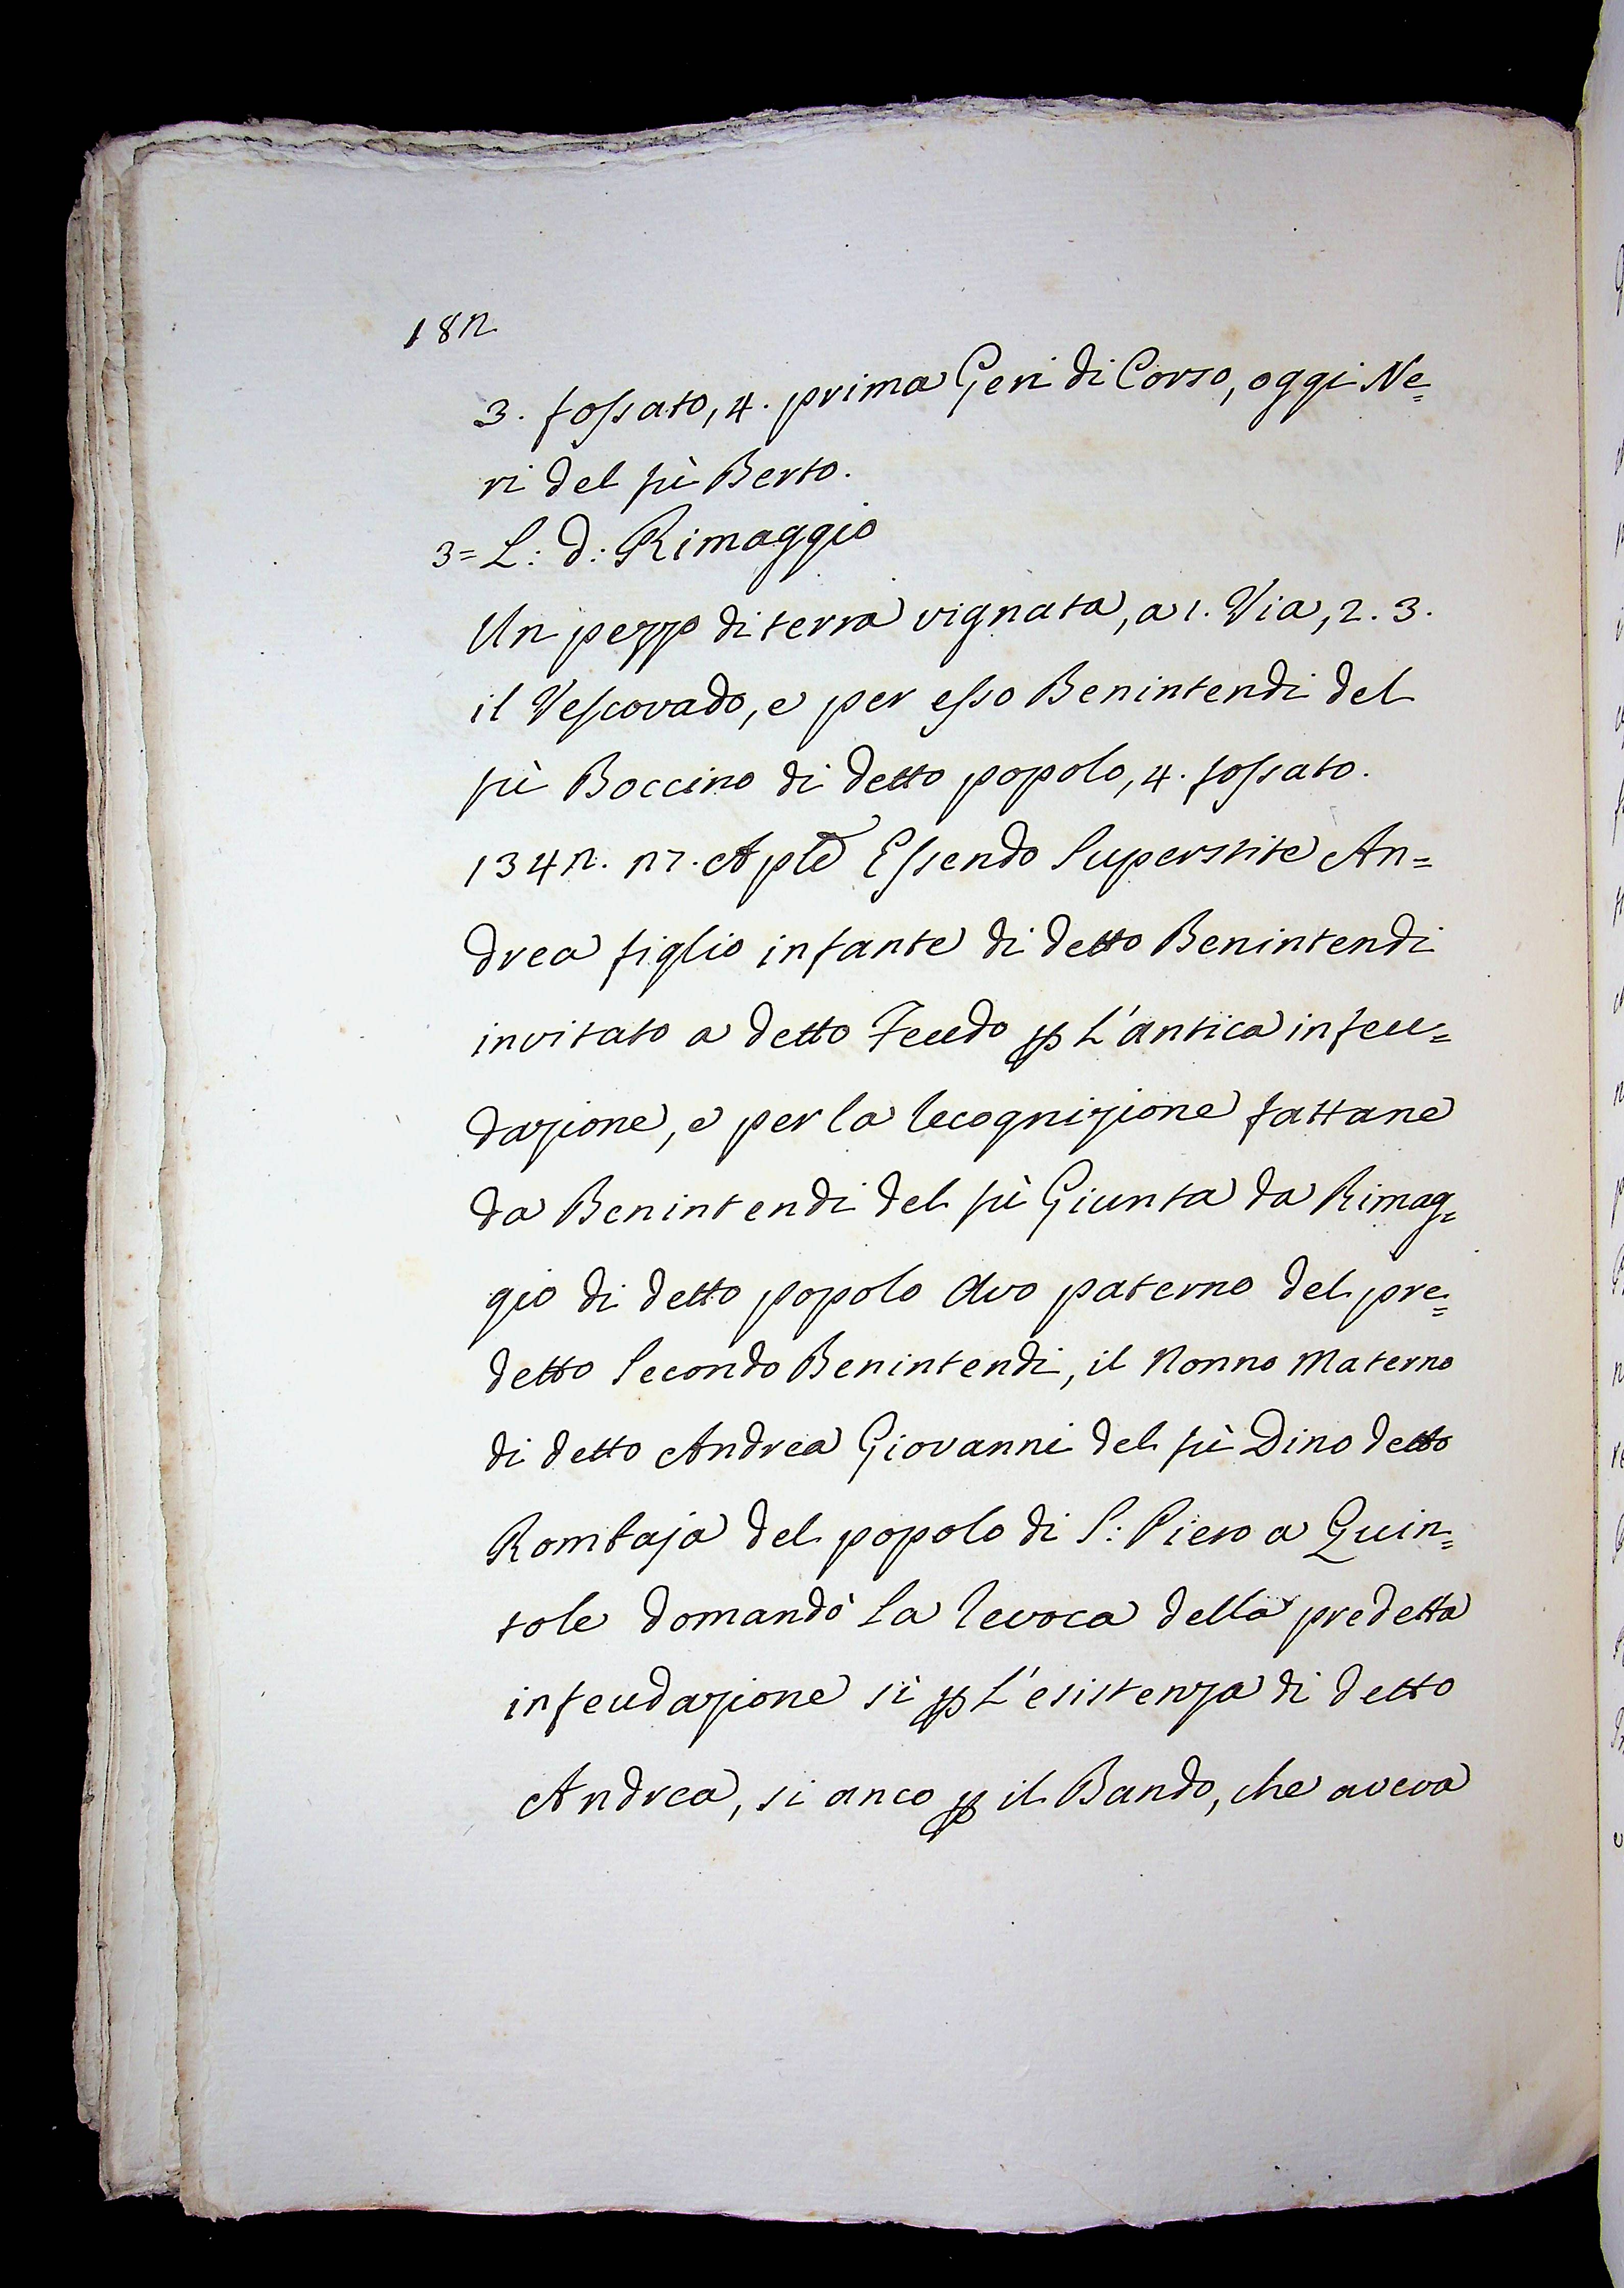 182
3. fossato, 4. prima Geri di Corso, oggi Ne=
ri del fù Berto.
3= L: d: Rimaggio
Un pezzo di terra vignata, a 1. Via, 2. 3.
il Vescovado, e per esso Benintendi del
fù Boccino di detto popolo, 4. fossato.
1342. 27. Aple Essendo Superstite An=
drea figlio infante di detto Benintendi
invitato a detto Feudo ꝑ L'antica infeu=
dazione, e per la recognizione fattane
da Benintendi del fù Giunta da Rimag=
gio di detto popolo Avo paterno del pre=
detto Secondo Benintendi, il Nonno Materno
di detto Andrea Giovanni del fù Dino detto
Rombaja del popolo di S: Piero a Quin=
tole domandò la revoca della predetta
infeudazione sì ꝑ L'esistenza di detto
Andrea, si anco ꝑ il Bando, che aveva